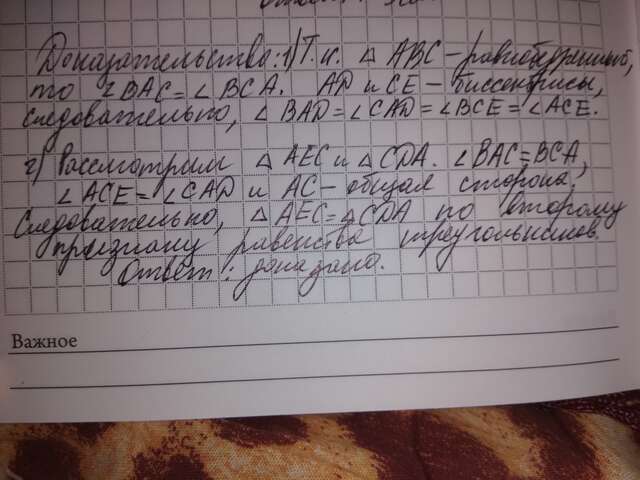 Доказательство: 1) Т.к. △ ABC – равнобедренный,
то ∠BAC = ∠BCA. AD и CE – биссектрисы,
следовательно, ∠BAD = ∠CAD = ∠BCE = ∠ACE.
2) Рассмотрим △ AEC и △ CDA. ∠BAC = BCA,
∠ACE = ∠CAD и AC – общая сторона,
следовательно, △ AEC = △ CDA по второму
признаку равенства треугольников.
Ответ: доказано.
Важное